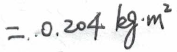 = 0.204 kg·m²